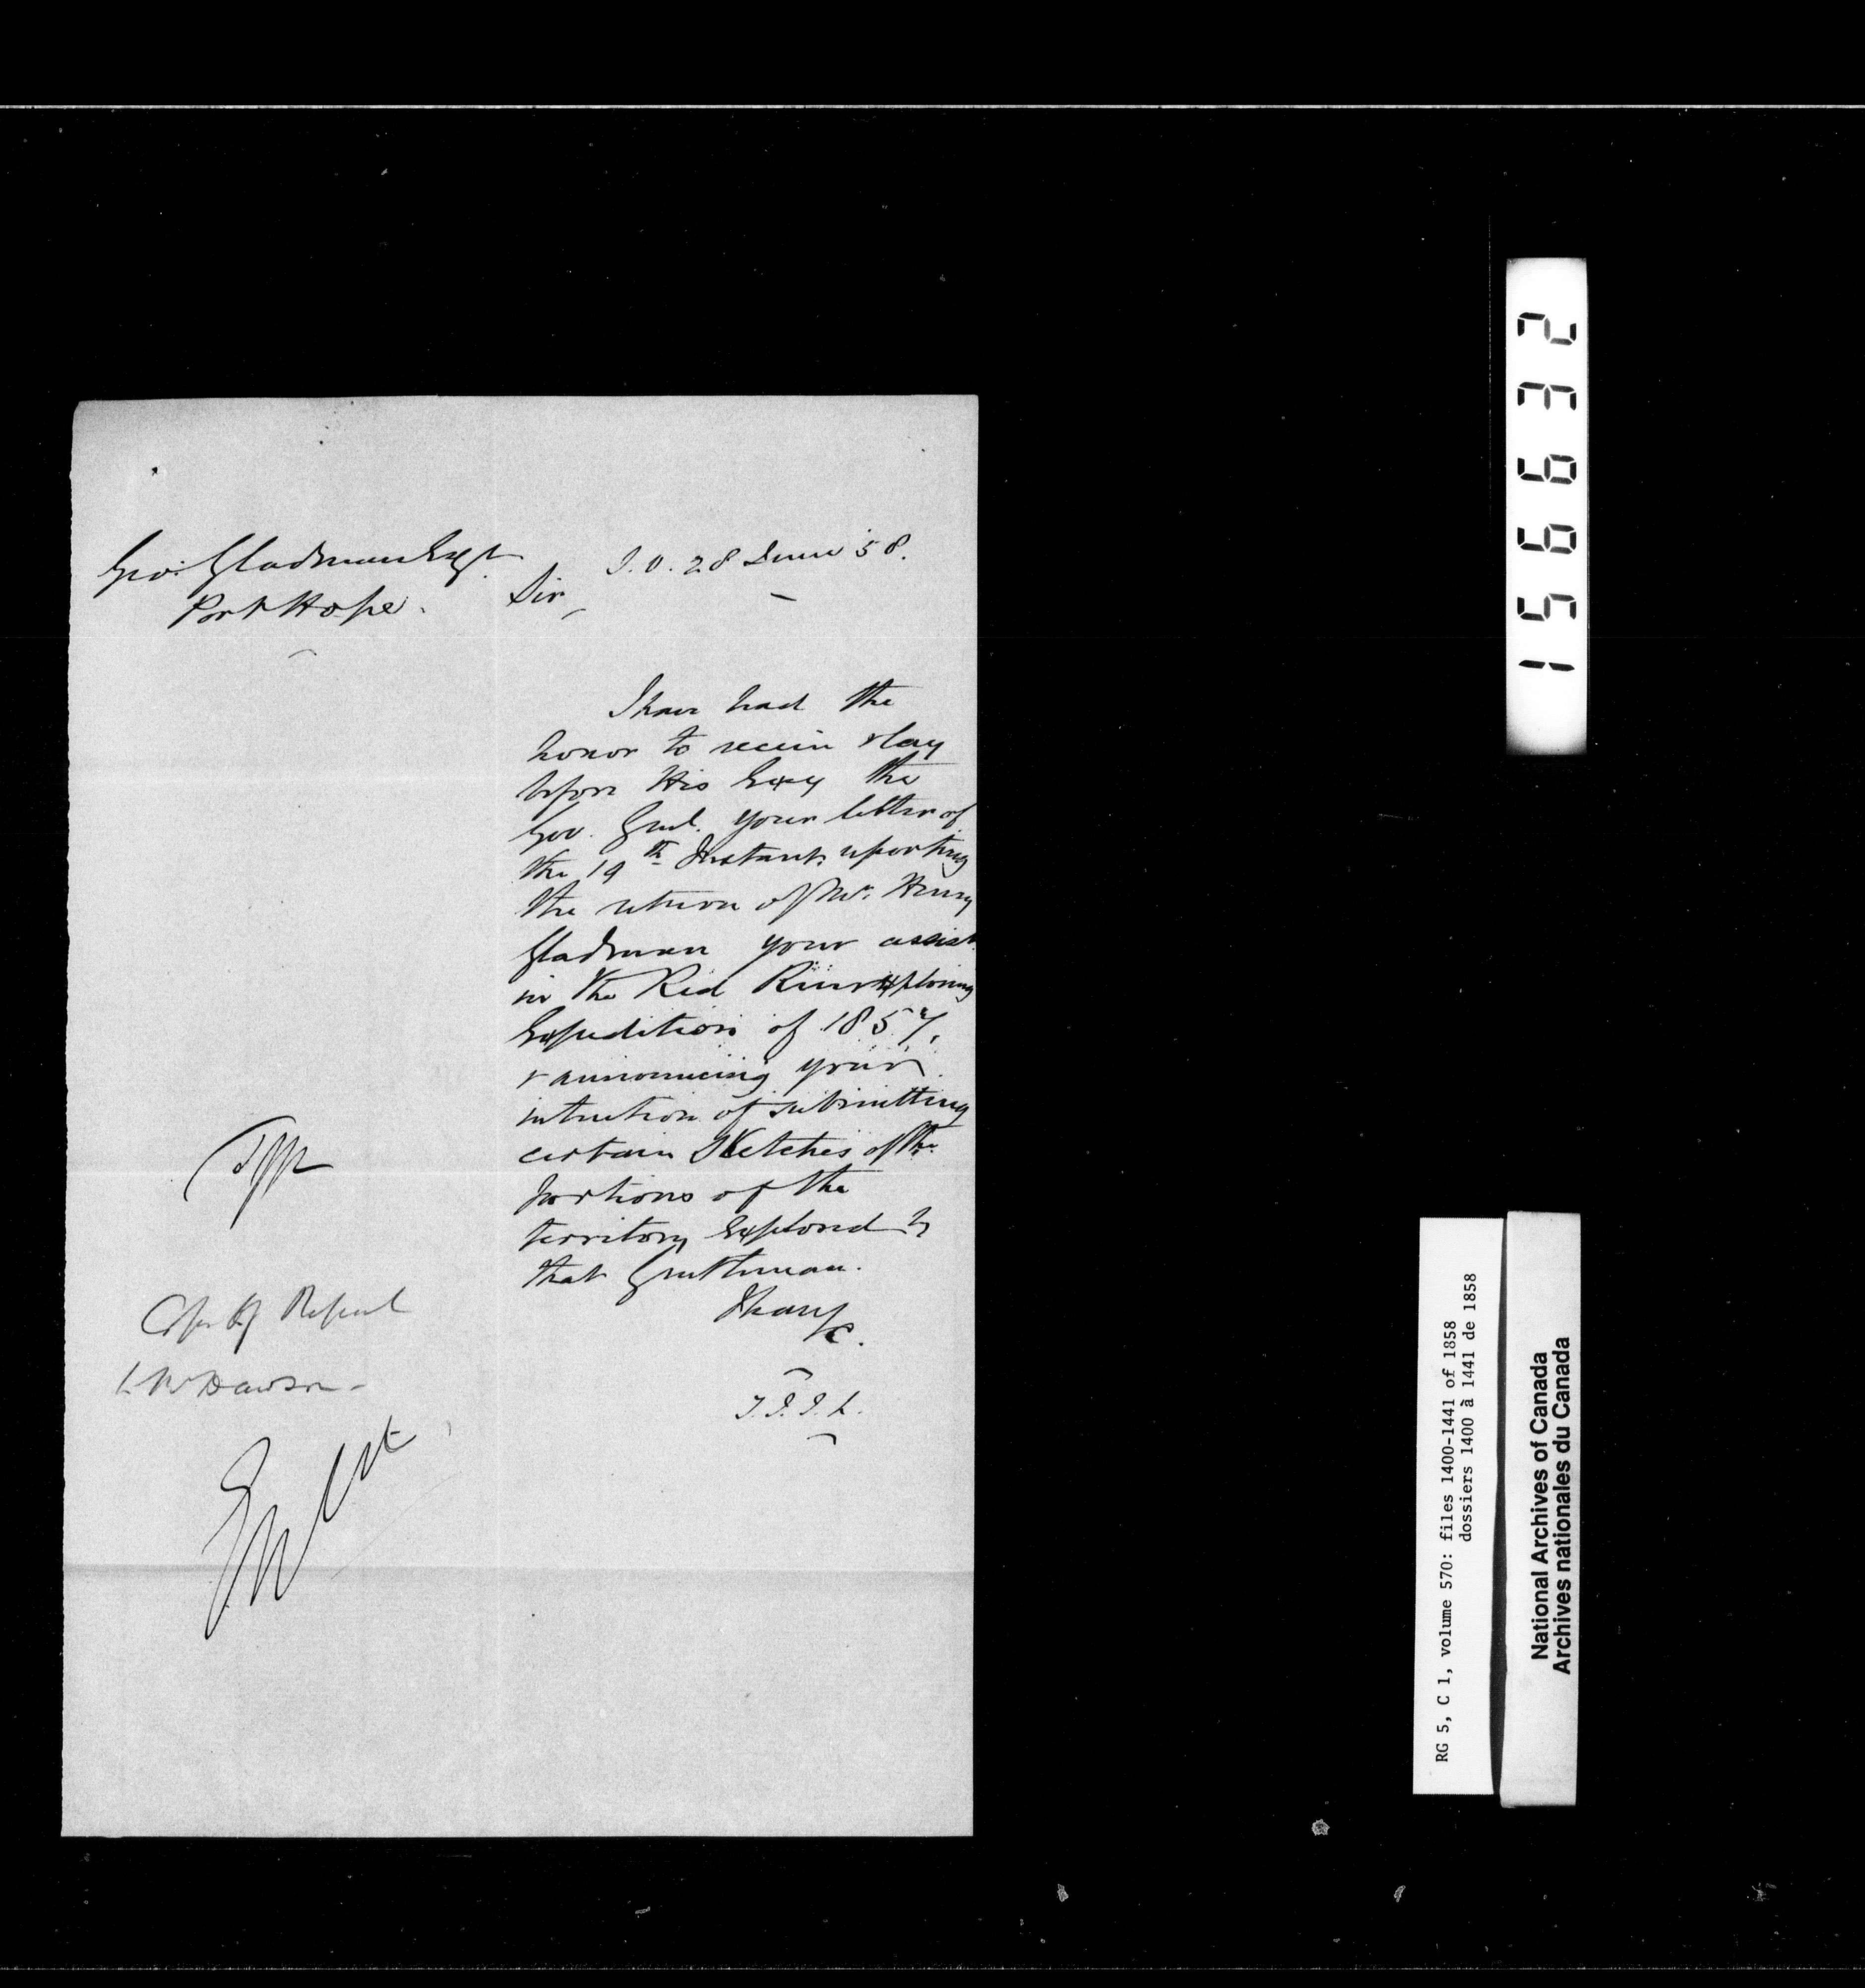 Geo. Gladman Esqr.
Port Hope.
S.O. 28 June 58.
Sir,
I have had the
honor to receive & lay
before His Excy the
Gov. Genl. your letter of
the 19th Instant, reporting
the return of Mr. Henry
Gladman your assist.
in the Red River exploring
Expedition of 1857,
& announcing your
intention of submitting
certain Sketches of the
portions of the
territory explored by
that Gentleman.
I have
&c.
T.J.J.L.
Dawson
156632
RG 5, C 1, volume 570: files 1400-1441 of 1858
dossiers 1400 à 1441 de 1858
National Archives of Canada
Archives nationales du Canada